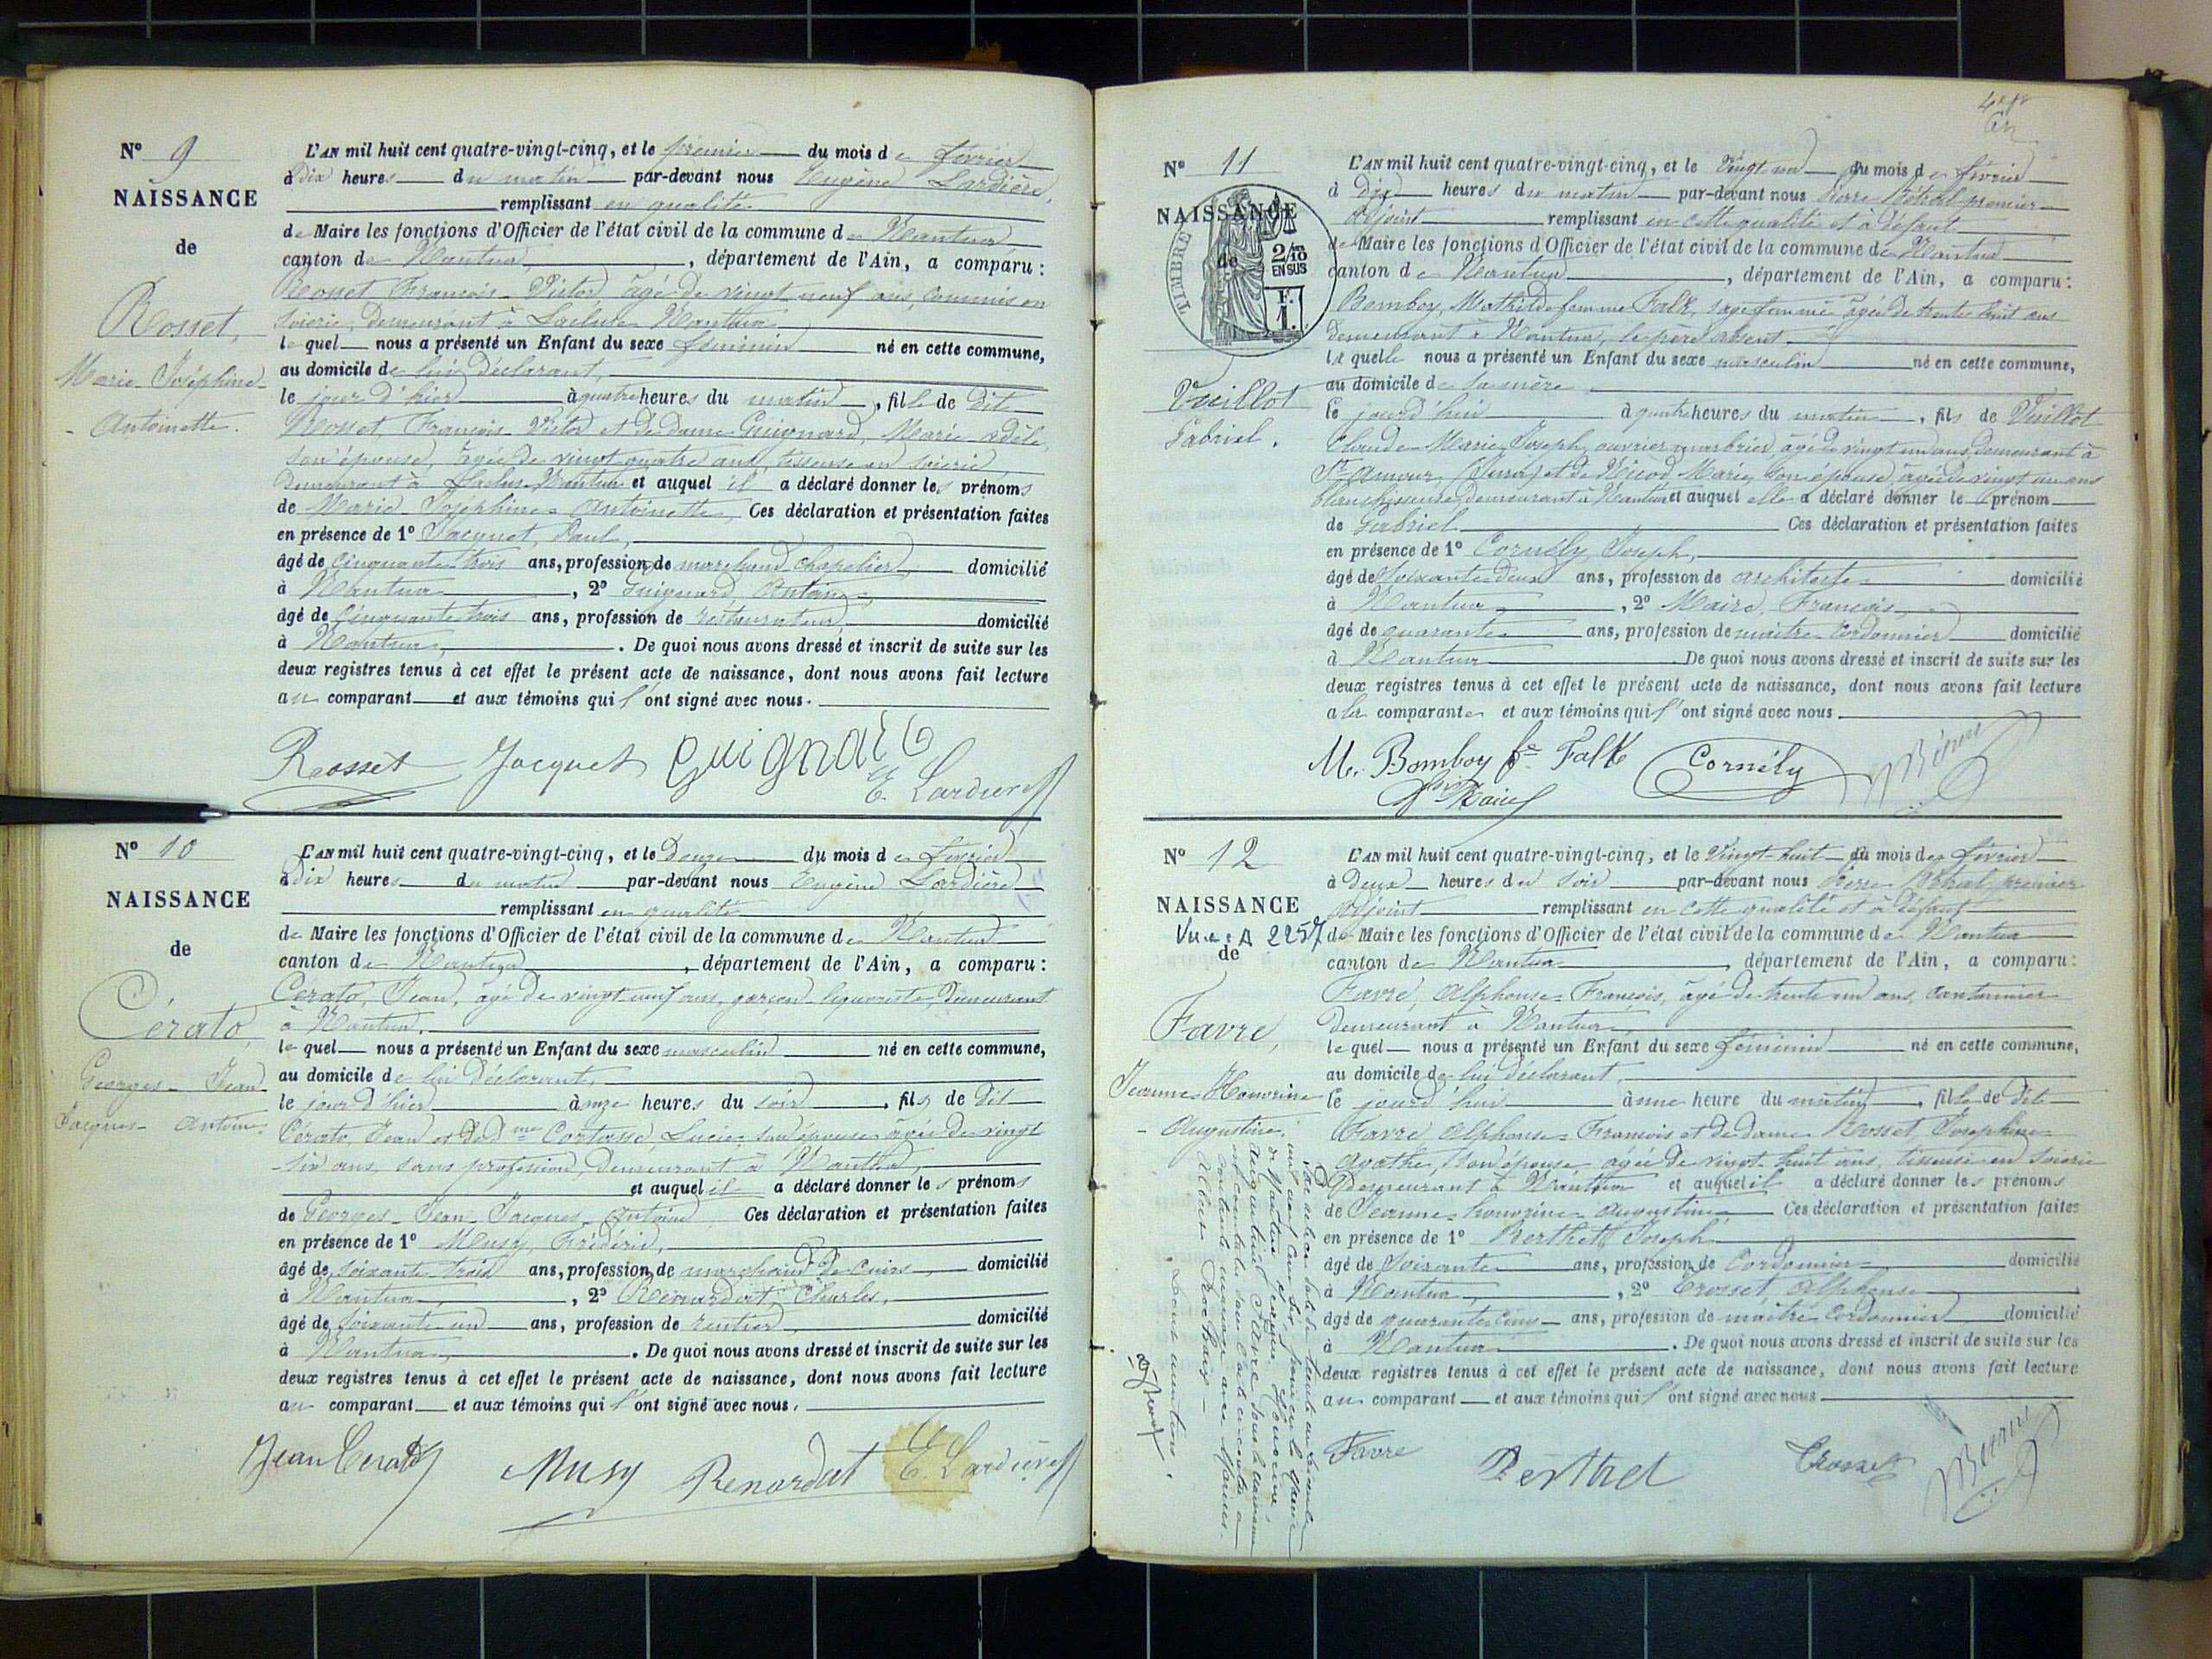 N° 9
NAISSANCE
de
Rosset,
Marie Joséphine
Antoinette.
L'AN mil huit cent quatre-vingt-cinq, et le premier du mois de février
à dix heures du matin par-devant nous Eugène Lardière,
remplissant en qualité
de Maire les fonctions d'Officier de l'état civil de la commune de Nantua
canton de Nantua, département de l'Ain, a comparu :
Rosset François Victor, âgé de vingt neuf ans, commis en
soierie, demeurant à Nantua
lequel nous a présenté un Enfant du sexe féminin né en cette commune,
au domicile de lui déclarant,
le jour d'hier à quatre heures du matin, fille de dit
Rosset, François Victor et de dame Guignard, Marie Adèle
son épouse, âgée de vingt quatre ans, tisseuse en soierie
demeurant à Nantua et auquel il a déclaré donner les prénoms
de Marie Joséphine Antoinette. Ces déclaration et présentation faites
en présence de 1° Jacquet, Paul,
âgé de cinquante trois ans, profession de marchand chapelier, domicilié
à Nantua, 2° Guignard, Antoine,
âgé de cinquante trois ans, profession de restaurateur, domicilié
à Nantua, . De quoi nous avons dressé et inscrit de suite sur les
deux registres tenus à cet effet le présent acte de naissance, dont nous avons fait lecture
au comparant et aux témoins qui l'ont signé avec nous.
Rosset Jacquet Guignard
E. Lardière
N° 10
NAISSANCE
de
Cérato,
Georges Jean
Jacques Antoine.
L'AN mil huit cent quatre-vingt-cinq, et le Douze du mois de Février
à dix heures du matin par-devant nous Eugène Lardière
remplissant en qualité
de Maire les fonctions d'Officier de l'état civil de la commune de Nantua
canton de Nantua, département de l'Ain, a comparu :
Cerato, Jean, âgé de vingt neuf ans, garçon liquoriste, demeurant
à Nantua.
lequel nous a présenté un Enfant du sexe masculin né en cette commune,
au domicile de lui déclarant,
le jour d'hier à onze heures du soir, fils de dit
Cérato, Jean et de dme Lucie son épouse âgée de vingt
six ans, sans profession, demeurant à Nantua,
et auquel il a déclaré donner les prénoms
de Georges Jean Jacques Antoine. Ces déclaration et présentation faites
en présence de 1° Musy, Frédéric,
âgé de soixante trois ans, profession de marchand de cuirs, domicilié
à Nantua, 2° Renardat, Charles,
âgé de soixante un ans, profession de rentier, domicilié
à Nantua, . De quoi nous avons dressé et inscrit de suite sur les
deux registres tenus à cet effet le présent acte de naissance, dont nous avons fait lecture
au comparant et aux témoins qui l'ont signé avec nous.
Jean Cerato Musy Renardat E. Lardière
N° 11
NAISSANCE
de
TIMBRE
2/10
EN SUS
F.
1.
Vuillot
Gabriel.
L'AN mil huit cent quatre-vingt-cinq, et le Vingt un du mois de février
à Dix heures du matin par-devant nous Pierre premier
Adjoint remplissant en cette qualité et à défaut
de Maire les fonctions d'Officier de l'état civil de la commune de Nantua
canton de Nantua, département de l'Ain, a comparu :
Bomboy, Mathilde femme Falk, sage femme âgée de trente huit ans
demeurant à Nantua, le père absent.
laquelle nous a présenté un Enfant du sexe masculin né en cette commune,
au domicile de sa mère
le jourd'hui à quatre heures du matin, fils de Vuillot
Claude Marie Joseph, ouvrier marbrier, âgé de vingt un ans, demeurant à
St Amour, (Jura) et de Marie, son épouse, âgée de vingt un ans
blanchisseuse, demeurant à Nantua et auquel elle a déclaré donner le prénom
de Gabriel. Ces déclaration et présentation faites
en présence de 1° Cornély, Joseph,
âgé de soixante deux ans, profession de architecte domicilié
à Nantua, 2° Maire, François,
âgé de quarante ans, profession de maître cordonnier domicilié
à Nantua. De quoi nous avons dressé et inscrit de suite sur les
deux registres tenus à cet effet le présent acte de naissance, dont nous avons fait lecture
à la comparante et aux témoins qui l'ont signé avec nous.
M. Bomboy fe Falk Cornély
Maire
N° 12
NAISSANCE
de
2257
Favre,
Jeanne Honorine
Augustine.
L'AN mil huit cent quatre-vingt-cinq, et le Vingt-huit du mois de février
à Deux heures du soir par-devant nous Pierre premier
Adjoint remplissant en cette qualité et à défaut
de Maire les fonctions d'Officier de l'état civil de la commune de Nantua
canton de Nantua, département de l'Ain, a comparu :
Favre, Alphonse François, âgé de trente un ans, cantonnier
demeurant à Nantua
lequel nous a présenté un Enfant du sexe féminin né en cette commune,
au domicile de lui déclarant,
le jourd'hui à une heure du matin, fille de dit
Favre Alphonse François et de dame Rosset, Joséphine
Agathe, son épouse, âgée de vingt huit ans, tisseuse en soierie
demeurant à Nantua et auquel il a déclaré donner les prénoms
de Jeanne honorine Augustine. Ces déclaration et présentation faites
en présence de 1° Berthet Joseph
âgé de soixante ans, profession de Cordonnier domicilié
à Nantua, 2° Crosset, Alphonse
âgé de quarante cinq ans, profession de maître Cordonnier domicilié
à Nantua. De quoi nous avons dressé et inscrit de suite sur les
deux registres tenus à cet effet le présent acte de naissance, dont nous avons fait lecture
au comparant et aux témoins qui l'ont signé avec nous
Favre Berthet Crosset